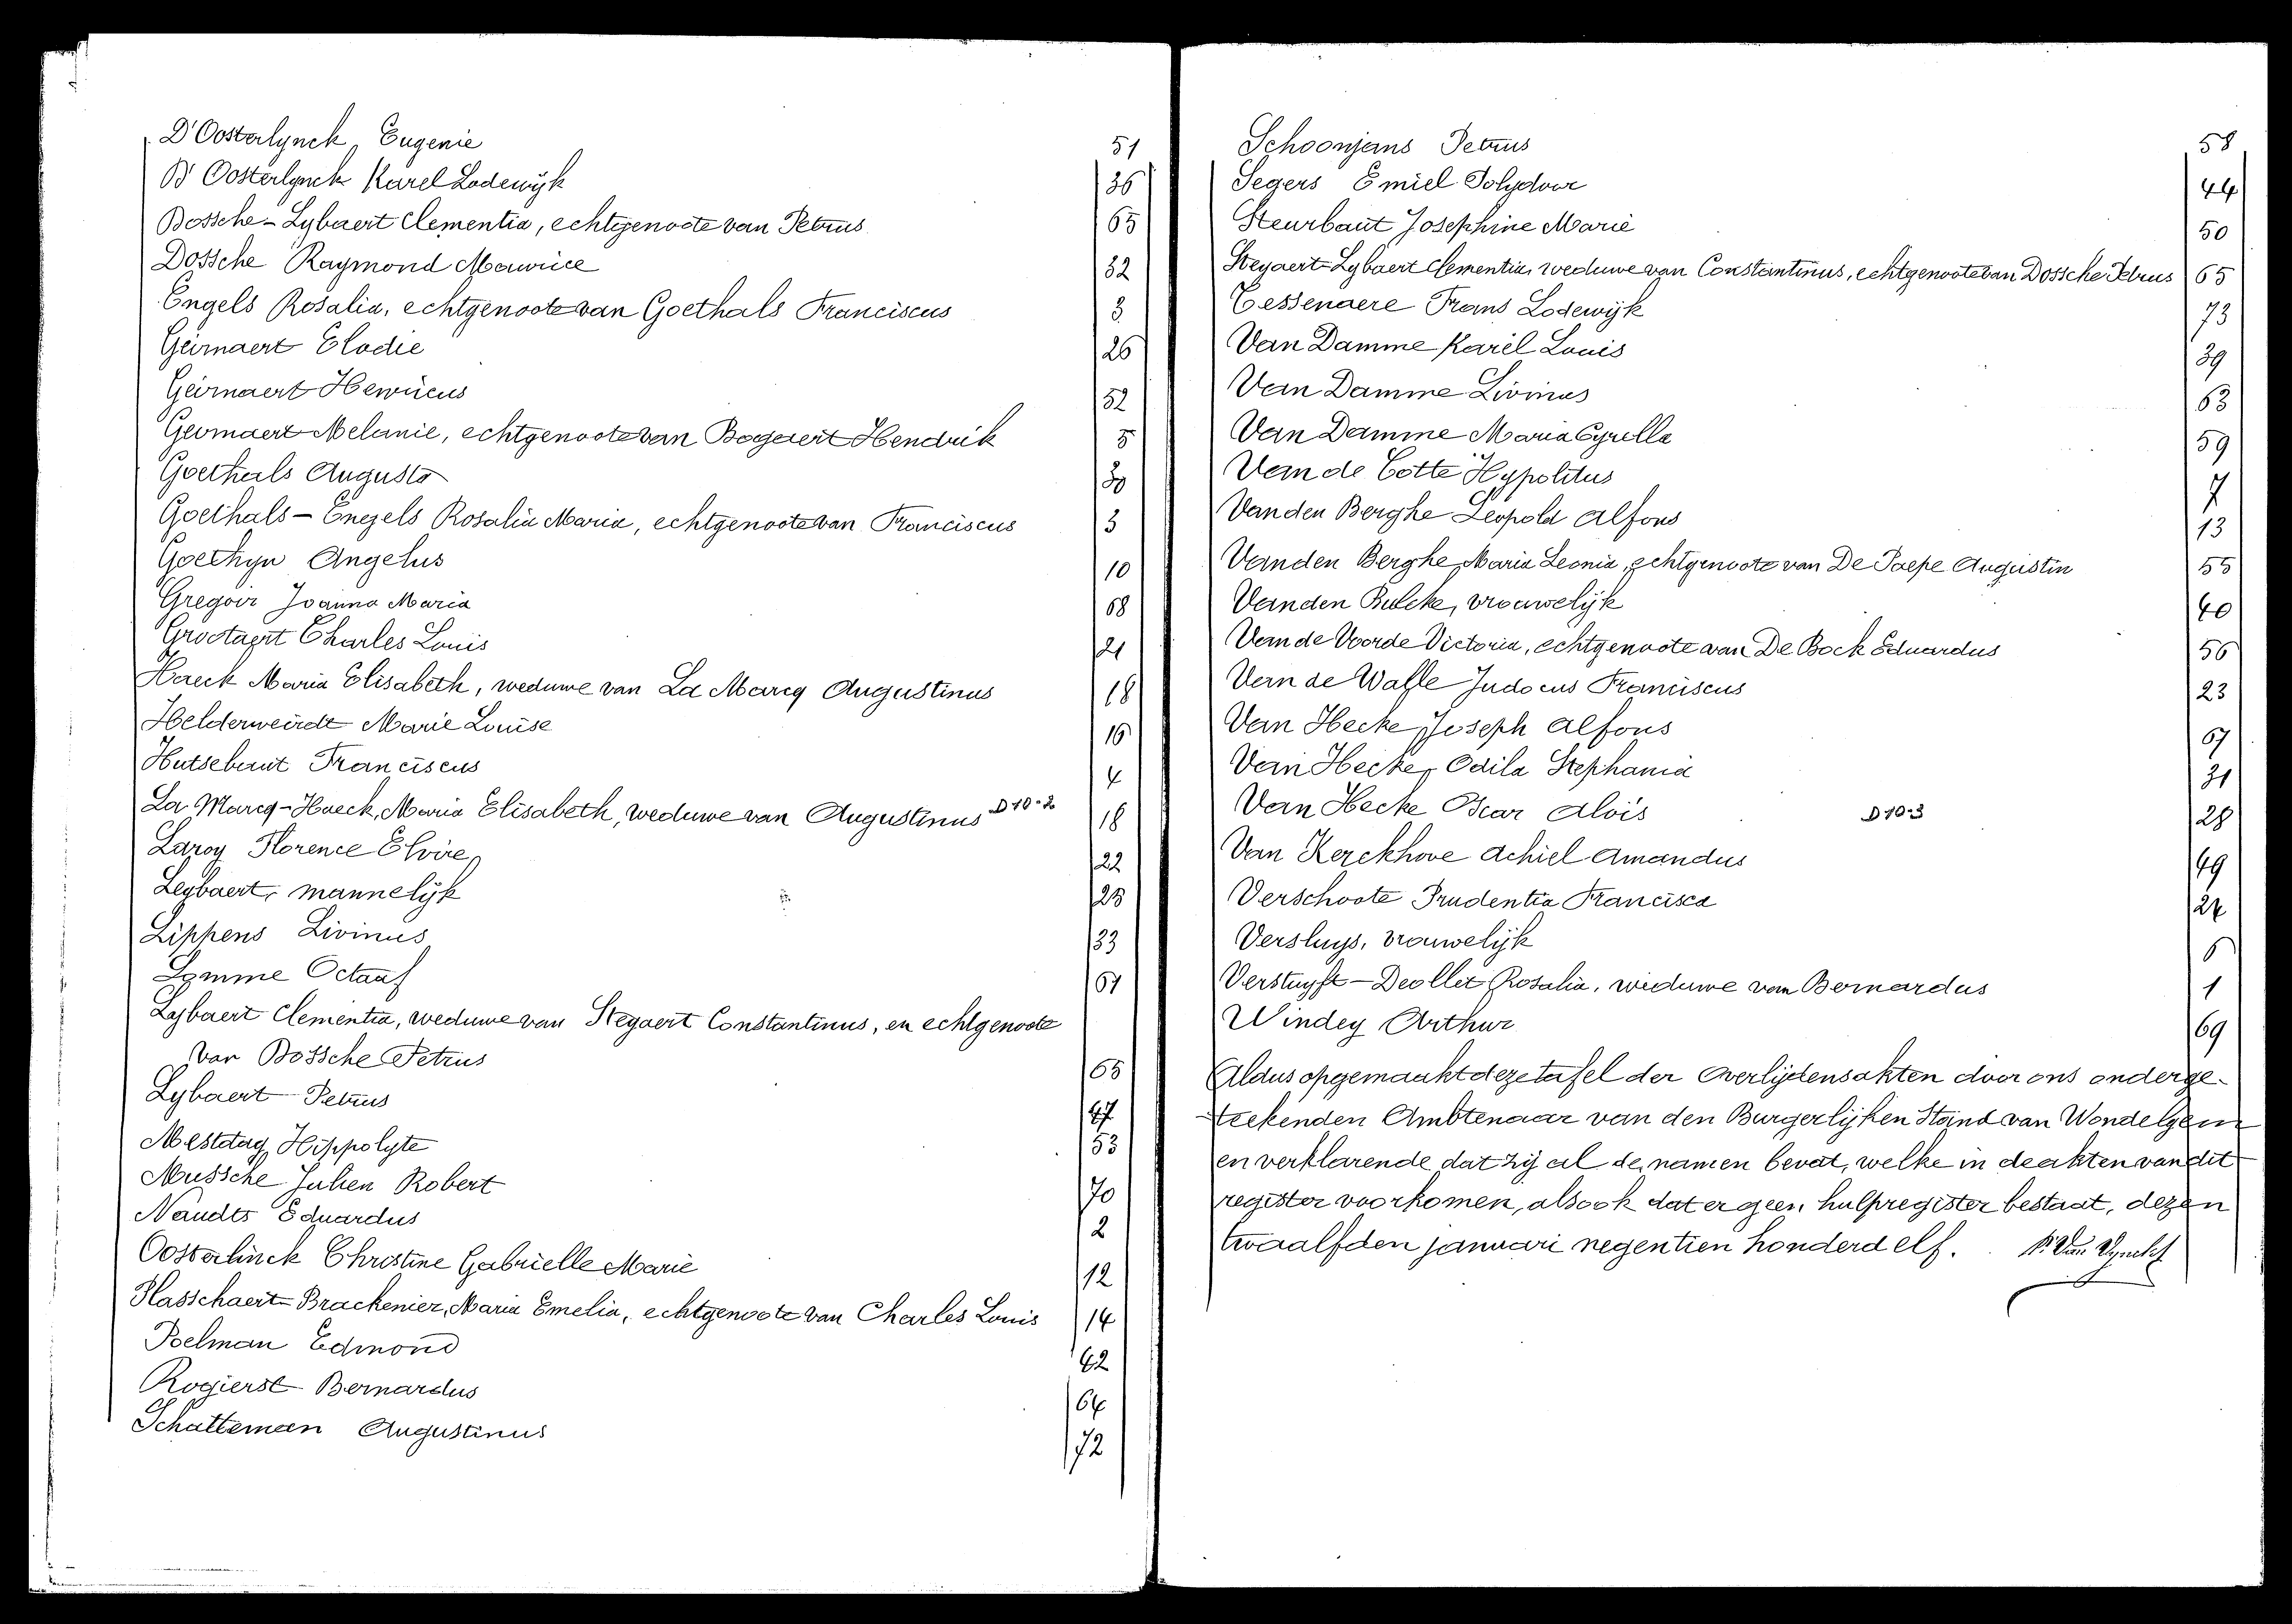 D'Oosterlynck, Eugenie 51
D'Oosterlynck Karel Lodewijk 36
Dossche-Lybaert Clementia, echtgenoote van Petrus 65
Dossche Raymond Maurice 32
Engels Rosalia, echtgenoote van Goethals Franciscus 3
Geirnaert Elodie 26
Geirnaert Henricus 52
Geirnaert Melanie, echtgenoote van Bogaert Hendrik 5
Goethals Augusta 30
Goethals-Engels Rosalia Maria, echtgenoote van Franciscus 3
Goethyn Angelus 10
Gregoir Joanna Maria 68
Grootaert Charles Louis 21
Haeck Maria Elisabeth, weduwe van La Marcq Augustinus 18
Helderweirdt Marie Louise 16
Hutsebaut Franciscus 4
La Marcq-Haeck, Maria Elisabeth, weduwe van Augustinus D 10-2 18
Laroy Florence Elvire 22
Leybaert, mannelijk 25
Lippens Livinus 33
Lomme Octaaf 61
Lybaert Clementia, weduwe van Stegaert Constantinus, en echtgenoote
van Dossche Petrus 65
Lybaert Petrus 47
Mestdag Hippolyte 53
Mussche Julien Robert 70
Naudts Eduardus 2
Oosterlinck Christine Gabrielle Marie 12
Plasschaert-Brackenier, Maria Emelia, echtgenoote van Charles Louis 14
Poelman Edmond 42
Rogierst Bernardus 64
Schatteman Augustinus 72
Schoonjans Petrus 58
Segers Emiel Polydoor 44
Steurbaut Josephine Marie 50
Stegaert-Lybaert Clementia, weduwe van Constantinus, echtgenoote van Dossche Petrus 65
Tessenaere Frans Lodewijk 73
Van Damme Karel Louis 39
Van Damme Livinus 63
Van Damme Maria Cyrilla 59
Van de Cotte Hypolitus 7
Van den Berghe Leopold Alfons 13
Van den Berghe Maria Leonia, echtgenoote van De Paepe Augustin 55
Van den Bulcke, vrouwelijk 40
Van de Voorde Victoria, echtgenoote van De Bock Eduardus 56
Van de Walle Judocus Franciscus 23
Van Hecke Joseph Alfons 67
Van Hecke, Odila Stephania 31
Van Hecke Oscar Alois D 10-3 28
Van Kerckhove Achiel Amandus 49
Verschoote Prudentia Francisca 24
Versluys, vrouwelijk 6
Verstuyft-Deollet Rosalia, weduwe van Bernardus 1
Windey Arthur 69
Aldus opgemaakt deze tafel der Overlijdensakten door ons onderge-
teekenden Ambtenaar van den Burgerlijken Stand van Wondelgem
en verklarende dat zij al de namen bevat, welke in de akten van dit
register voorkomen, alsook dat er geen hulpregister bestaat, dezen
twaalfden januari negentien honderd elf.